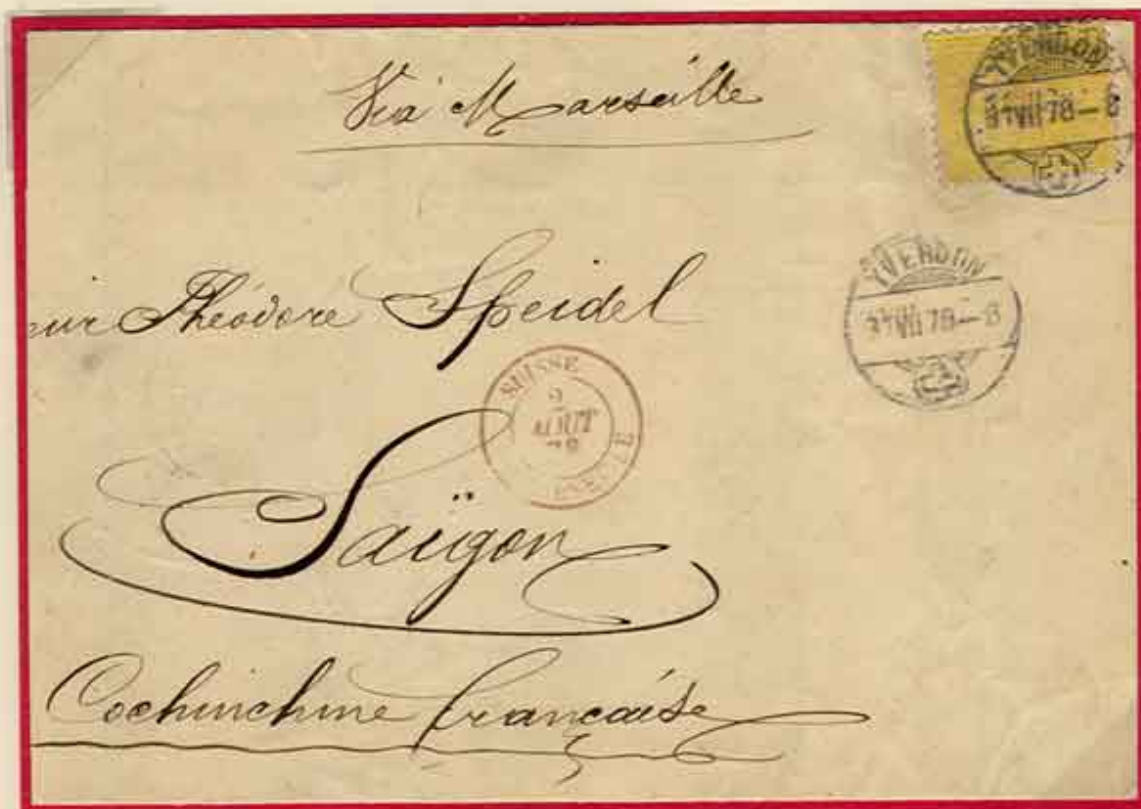 Via Marseille
YVERDON
31 VII 78 – 8
YVERDON
31 VII 78 – 8
eur Théodore Speidel
SUISSE
2
AOUT
78
Saïgon
Cochinchine française